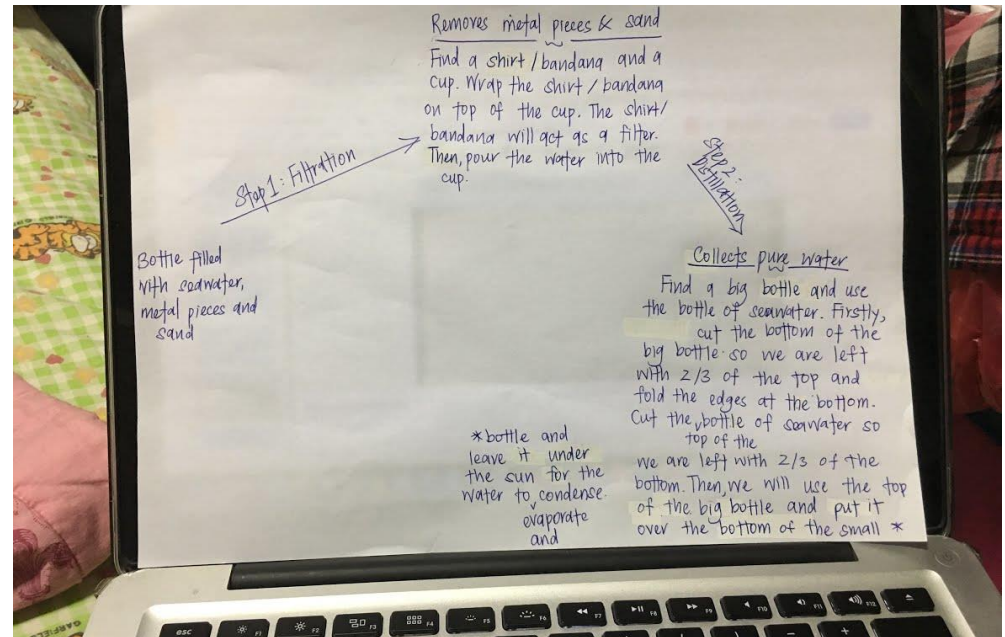 Removes metal pieces & sand
Find a shirt / bandana and a
cup. Wrap the shirt / bandana
on top of the cup. The shirt/
bandana will act as a filter.
Then, pour the water into the
cup.
Step 1: Filtration
Step 2:
Distillation
Bottle filled
with seawater,
metal pieces and
sand
Collects pure water
Find a big bottle and use
the bottle of seawater. Firstly,
cut the bottom of the
big bottle so we are left
with 2/3 of the top and
fold the edges at the bottom.
Cut the bottle of seawater so
top of the
we are left with 2/3 of the
bottom. Then, we will use the top
of the big bottle and put it
over the bottom of the small *
*bottle and
leave it under
the sun for the
water to condense.
evaporate
and
esc
F1
F2
F3
F4
F5
F6
F7
F8
F9
F10
F11
F12